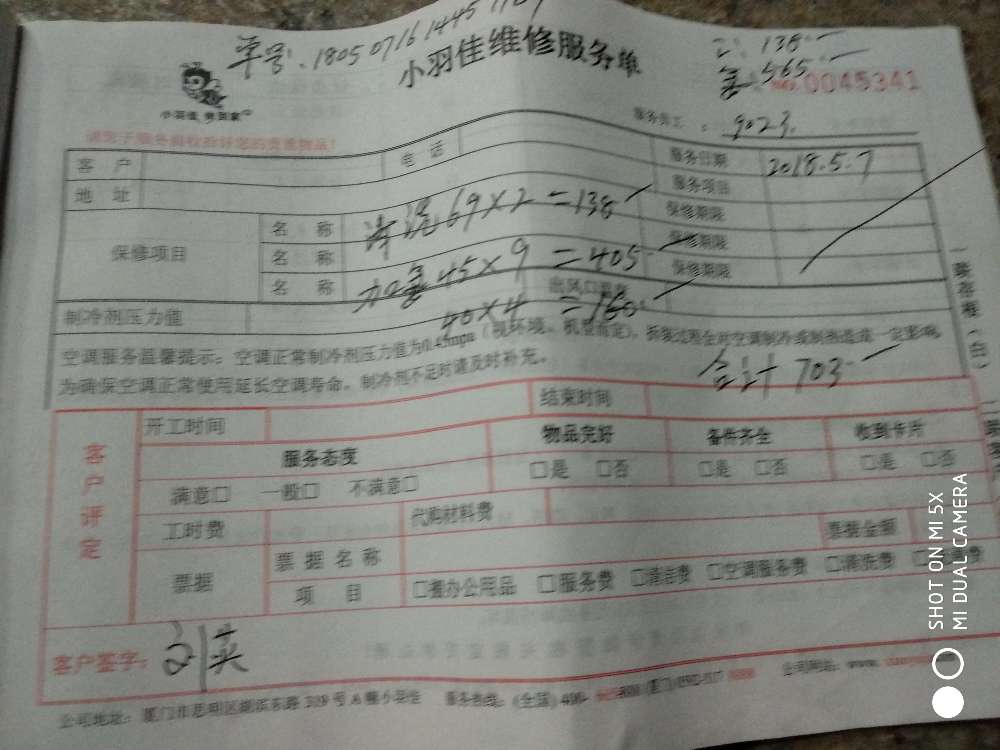 单号:180507161445
小羽佳维修服务单
138.
565.
NO.0045341
小羽佳 到家
服务员工:9023.
客户 电话 服务日期 2018.5.7
地址 服务项目
保修项目
名称 清洗 69×2=138 保修期限
名称 保修期限
名称 加氟 45×9=405 保修期限
制冷剂压力值
40×4=160
空调服务温馨提示:空调正常制冷剂压力值为0.45mpa(视环境、机型而定),拆装过程会对空调制冷或制热造成一定影响,
为确保空调正常使用延长空调寿命,制冷剂不足时请及时补充。
合计 703.
客户评定
开工时间 结束时间
服务态度 物品完好 备件齐全 收到卡片
满意□ 一般□ 不满意□ □是 □否 □是 □否 □是 □否
工时费 代购材料费
票据 票据名称 票据金额
项目 □办公用品 □服务费 □清洁费 □空调服务费 □清洗费
客户签字:
公司地址:厦门市思明区湖滨东路 服务热线:(全国)400- 公司网站:www.
SHOT ON MI 5X
MI DUAL CAMERA